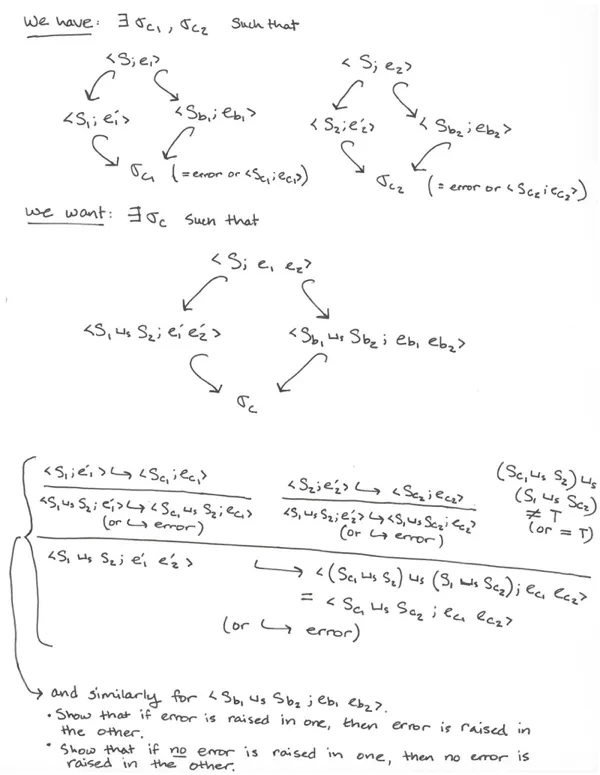 We have: ∃ σc1, σc2 such that
<S; e1> <S; e2>
<S1; e1'> <Sb1; eb1> <S2; e2'> <Sb2; eb2>
σc1 (= error or <Sc1; ec1>) σc2 (= error or <Sc2; ec2>)
We want: ∃ σc such that
<S; e1 e2>
<S1 ⊔s S2; e1' e2'> <Sb1 ⊔s Sb2; eb1 eb2>
σc
<S1; e1'> ↪ <Sc1; ec1> <S2; e2'> ↪ <Sc2; ec2> (Sc1 ⊔s S2) ⊔s
<S1 ⊔s S2; e1'> ↪ <Sc1 ⊔s S2; ec1> <S1 ⊔s S2; e2'> ↪ <S1 ⊔s Sc2; ec2> (S1 ⊔s Sc2)
(or ↪ error) (or ↪ error) ≠ T
(or = T)
<S1 ⊔s S2; e1' e2'> ↪ <(Sc1 ⊔s S2) ⊔s (S1 ⊔s Sc2); ec1 ec2>
= <Sc1 ⊔s Sc2; ec1 ec2>
(or ↪ error)
→ and similarly for <Sb1 ⊔s Sb2; eb1 eb2>.
• Show that if error is raised in one, then error is raised in
the other.
• Show that if no error is raised in one, then no error is
raised in the other.